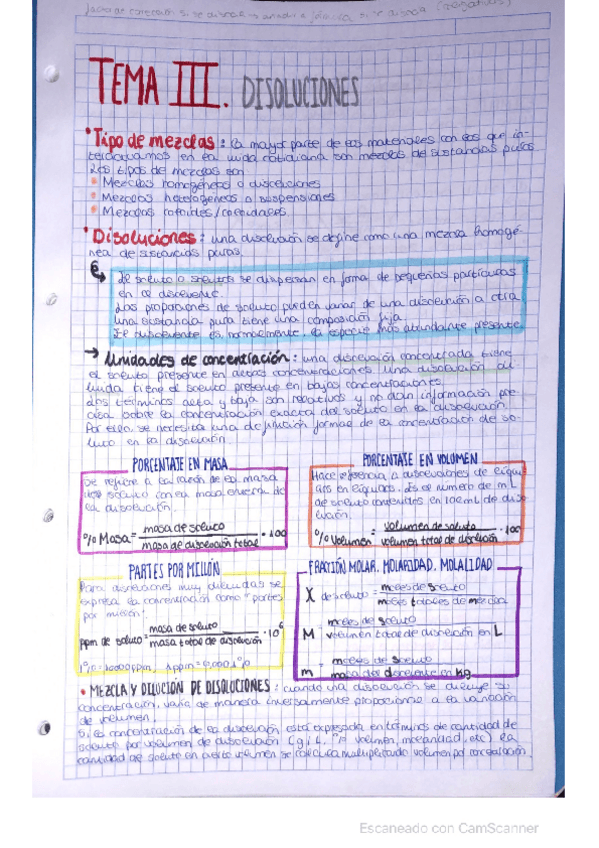 TEMA III. DISOLUCIONES
• Tipo de mezclas: la mayor parte de los materiales con los que in-
teractuamos en la vida cotidiana son mezclas de sustancias puras.
Los tipos de mezclas son
• Mezclas homogéneas o disoluciones
• Mezclas heterogéneas o suspensiones
• Mezclas coloides/coloidales.
• Disoluciones: una disolución se define como una mezcla homogé-
nea de sustancias puras.
El soluto o solutos se dispersan en forma de pequeñas partículas
en el disolvente.
Las proporciones de soluto pueden variar de una disolución a otra
una sustancia pura tiene una composición fija.
El disolvente es, normalmente, la especie más abundante presente.
→ Unidades de concentración: una disolución concentrada tiene
el soluto presente en altas concentraciones. Una disolución di-
luida tiene el soluto presente en bajas concentraciones.
Los términos alta y baja son relativos y no dan información pre-
cisa sobre la concentración exacta del soluto en la disolución.
Por ello se necesita una definición formal de la concentración de so-
luto en la disolución.
PORCENTAJE EN MASA
Se refiere a la razón de la masa
del soluto con la masa de
la disolución.
% Masa = masa de soluto / masa de disolución total · 100
PORCENTAJE EN VOLUMEN
Hace referencia a disoluciones de líqui-
dos en líquidos. Es el número de mL
de soluto contenidos en 100 mL de diso-
lución.
% Volumen = volumen de soluto / volumen total de disolución · 100
PARTES POR MILLÓN
Para disoluciones muy diluidas se
expresa la concentración como "partes
por millón".
ppm de soluto = masa de soluto / masa total de disolución · 10⁶
1% = 10000 ppm, 1ppm = 0,0001%
FRACCIÓN MOLAR. MOLARIDAD. MOLALIDAD
X de soluto = moles de soluto / moles totales de mezcla
M = moles de soluto / volumen total de disolución en L
m = moles de soluto / masa del disolvente en kg
• MEZCLA Y DILUCIÓN DE DISOLUCIONES: cuando una disolución se diluye su
concentración, varía de manera inversamente proporcional a la variación
de volumen.
Si la concentración de la disolución está expresada en términos de cantidad de
soluto por volumen de disolución (g/L, volumen, molaridad, etc) la
cantidad de soluto en cierto volumen se calcula multiplicando volumen por concentración.
Escaneado con CamScanner